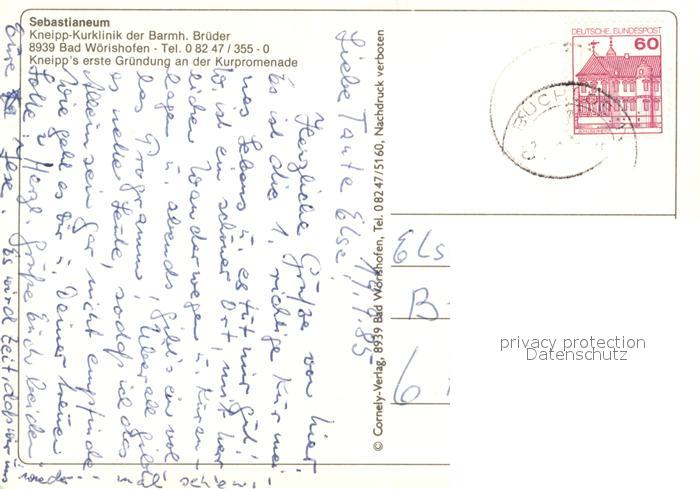 Sebastianeum
Kneipp-Kurklinik der Barmh. Brüder
8939 Bad Wörishofen - Tel. 0 82 47 / 355 - 0
Kneipp's erste Gründung an der Kurpromenade
DEUTSCHE BUNDESPOST
60
BUCH
© Cornely-Verlag, 8939 Bad Wörishofen, Tel. 0 82 47/5160, Nachdruck verboten
Liebe Tante Else!
Herzliche Grüße von hier.
Es ist die 1. richtige Kur mei-
nes Lebens u. es tut mir gut!
Es ist ein schöner Ort, mit herr-
lichen Wanderwegen u. Kuran-
lagen u. abends gibt's ein vol-
les Programm! Überall gibt
es nette Leute, sodaß ich das
Alleinsein gar nicht empfinde.
Wie geht es Dir u. Deiner treuen
Herzl. Grüße Euch beiden
Eure
Es wird Zeit, daß wir uns
wieder mal sehen!
Els
B
6
privacy protection
Datenschutz